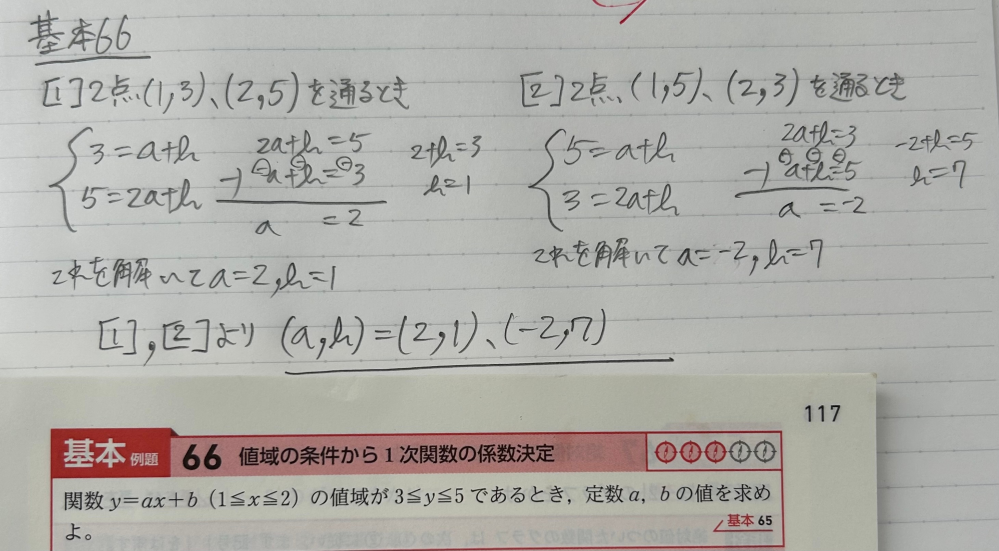 基本66
[1]2点(1,3)、(2,5)を通るとき
3=a+b
5=2a+b
2a+b=5
-) a+b=3
a =2
2+b=3
b=1
これを解いてa=2,b=1
[2]2点、(1,5)、(2,3)を通るとき
5=a+b
3=2a+b
2a+b=3
-) a+b=5
a =-2
-2+b=5
b=7
これを解いてa=-2,b=7
[1],[2]より (a,b)=(2,1)、(-2,7)
117
基本 例題 66 値域の条件から1次関数の係数決定
関数 y=ax+b (1≦x≦2) の値域が 3≦y≦5 であるとき,定数 a, b の値を求め
よ。
基本 65